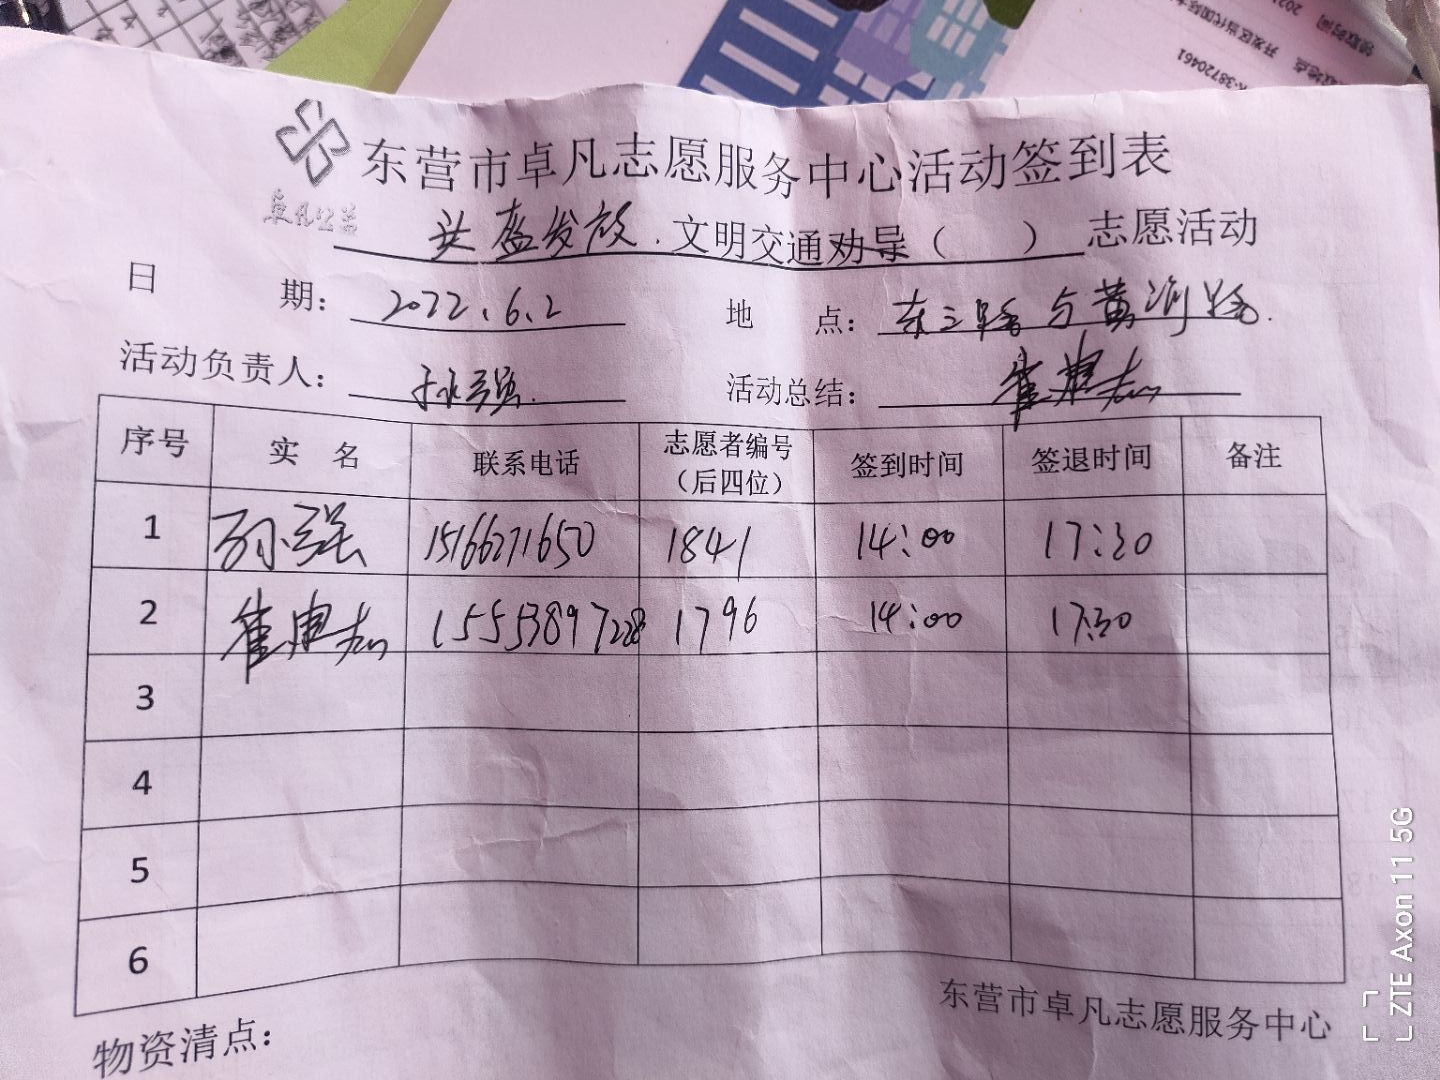 开发区当代国际
领取时间
38720461
东营市卓凡志愿服务中心活动签到表
卓凡公益
头盔发放.文明交通劝导（ ）志愿活动
日 期: 2022.6.2 地 点: 东三路与黄河路.
活动负责人: 孙强. 活动总结: 崔
序号 实 名 联系电话 志愿者编号（后四位） 签到时间 签退时间 备注
1 孙强 15166271650 1841 14:00 17:30
2 崔 15553897228 1796 14:00 17:30
3
4
5
6
物资清点:
东营市卓凡志愿服务中心
ZTE Axon 11 5G